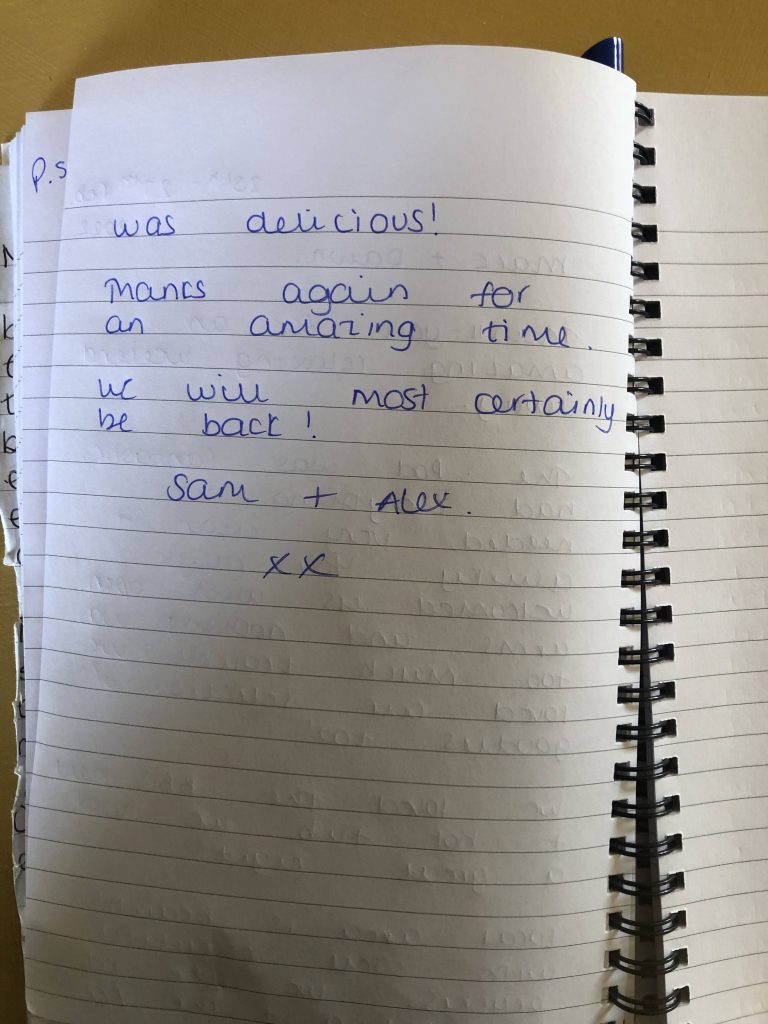 P.S
was delicious!
Thanks again for
an amazing time.
we will most certainly
be back!
Sam + Alex.
xx